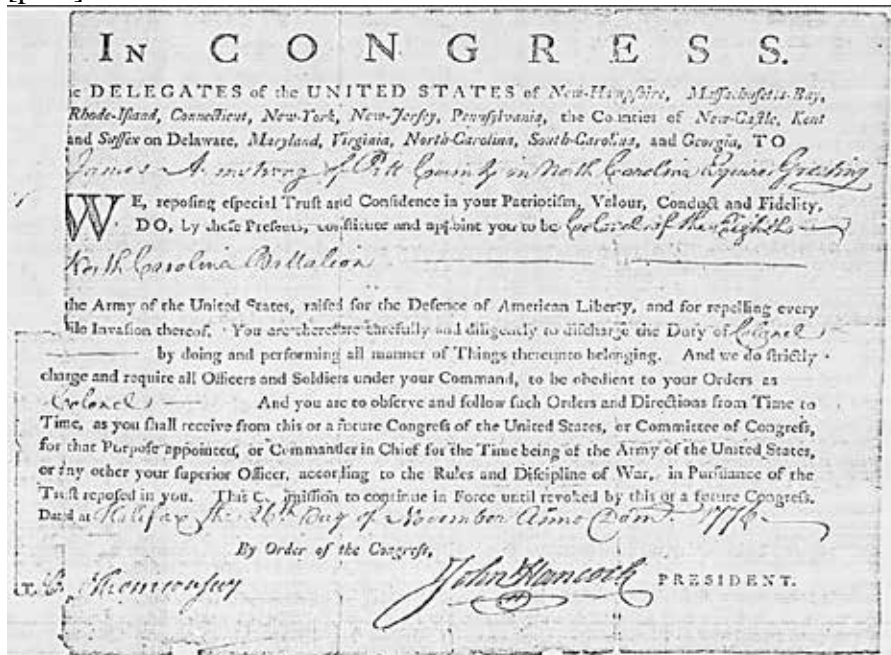 IN CONGRESS.
DELEGATES of the UNITED STATES of New-Hampshire, Massachusetts-Bay,
Rhode-Island, Connecticut, New-York, New-Jersey, Pennsylvania, the Counties of New-Castle, Kent
and Sussex on Delaware, Maryland, Virginia, North-Carolina, South-Carolina, and Georgia, TO
James Armstrong of Pitt County in North Carolina Esquire Greeting
WE, reposing especial Trust and Confidence in your Patriotism, Valour, Conduct and Fidelity,
DO, by these Presents, constitute and appoint you to be Colonel of the Eighth
North Carolina Battalion
the Army of the United States, raised for the Defence of American Liberty, and for repelling every
Invasion thereof. You are therefore carefully and diligently to discharge the Duty of Colonel
by doing and performing all manner of Things thereunto belonging. And we do strictly
charge and require all Officers and Soldiers under your Command, to be obedient to your Orders as
Colonel And you are to observe and follow such Orders and Directions from Time to
Time, as you shall receive from this or a future Congress of the United States, or Committee of Congress,
for that Purpose appointed, or Commander in Chief for the Time being of the Army of the United States,
or any other your superior Officer, according to the Rules and Discipline of War, in Pursuance of the
Trust reposed in you. This Commission to continue in Force until revoked by this or a future Congress.
Dated at Halifax the 26th Day of November Anno Dom. 1776
By Order of the Congress,
John Hancock PRESIDENT.